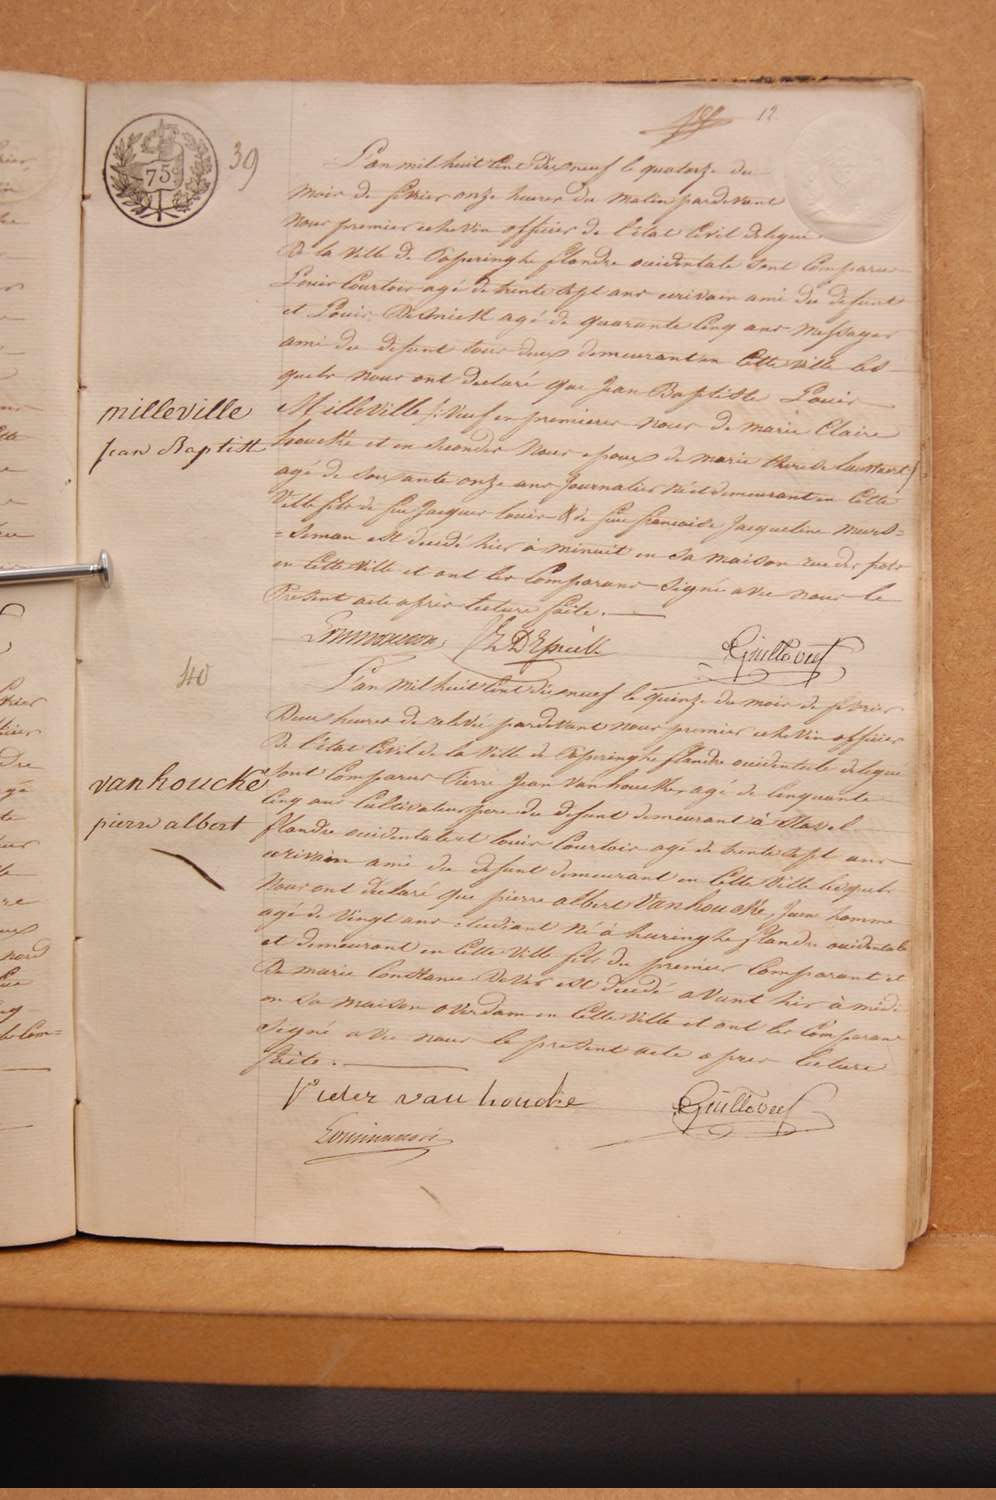 12
75
39
L'an mil huit Cent dix neuf le quatorze du
mois de fevrier onze heures du matin pardevant
nous premier echevin officier de l'etat Civil delegué
De la Ville de Poperinghe flandre occidentale sont Comparus
Louis Courtois agé de trente sept ans ecrivain ami du defunt
et Louis agé de quarante Cinq ans messager
ami du defunt tous deux demeurant en Cette Ville les
quels nous ont declaré que Jean Baptiste Louis
milleville
Jean Baptist
Milleville /: Veuf en premieres nous de marie Claire
houcke et en secondes nous epoux de marie therese
agé de soixante onze ans Journalier né et demeurant en Cette
Ville fils de feu Jacques Louis & de feue francoise Jacqueline meurs=
=seman est decedé hier à minuit en sa maison rue des pots
en Cette Ville et ont les Comparans signé avec nous le
Present acte apres lecture faite.
Guillovel
40
L'an mil huit Cent dix neuf le quinze du mois de fevrier
Deux heures de relevée pardevant nous premier echevin officier
De l'etat Civil de la Ville de Poperinghe flandre occidentale delegué
sont Comparus Pierre Jean Vanhoucke agé de Cinquante
vanhoucké
pierre albert
Cinq ans Cultivateur pere du defunt demeurant à Stavel
flandre occidentale et Louis Courtois agé de trente sept ans
ecrivain ami du defunt demeurant en Cette Ville lesquels
nous ont declaré que pierre albert Vanhoucké, Jeun homme
agé de Vingt ans etudiant né à haringhe flandre occidentale
et demeurant en Cette Ville fils du premier Comparant et
De marie Constance est decedé avant hier à midi
en sa maison overdam en Cette Ville et ont les Comparans
signé avec nous le present acte apres lecture
faite.
Pieter van houcke
Guillovel